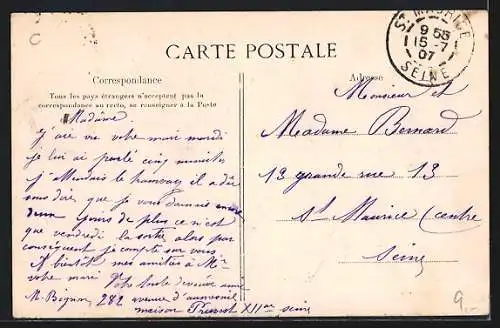 C
CARTE POSTALE
Correspondance
Tous les pays étrangers n'acceptent pas la
correspondance au recto, se renseigner à la Poste
Adresse
ST MAURICE
9 55
15-7
07
SEINE
Madame.
J'ai vu votre mari mardi
je lui ai parlé cinq minutes
j'attendais le tramway il a dû
vous dire, que je vous donnais encore
deux jours de plus ce n'est
que vendredi la sortie alors par
conséquent je compte sur vous
A bientôt mes amitiés à Mr
votre mari Votre toute dévouée amie
M. Bignon, 282 avenue
maison XIIme seine
Monsieur et
Madame Bernard
13 grande rue 13
St Maurice (centre
Seine
9.-